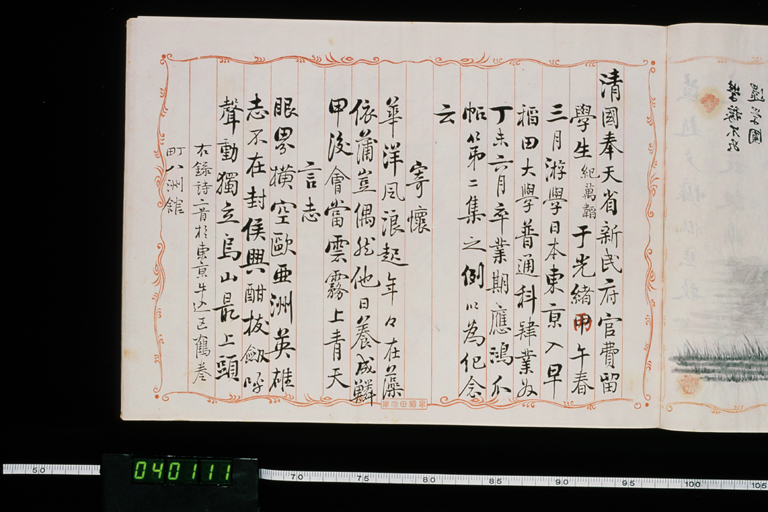 清國奉天省新民府官費留
學生紀萬韜于光緒丙午春
三月游學日本東京入早
稻田大學普通科肄業如
丁未六月卒業期應鴻爪
帖第二集之例以為紀念
云
寄懷
華洋風浪起年々在藻
依蒲豈偶然他日養成鱗
甲後會當雲霧上青天
言志
眼界橫空歐亞洲英雄
志不在封侯興酣拔劍呼
聲動獨立烏山最上頭
右錄詩二首於東京牛込區鶴巻
町八洲館
040111
50
70
75
80
85
90
95
100
105